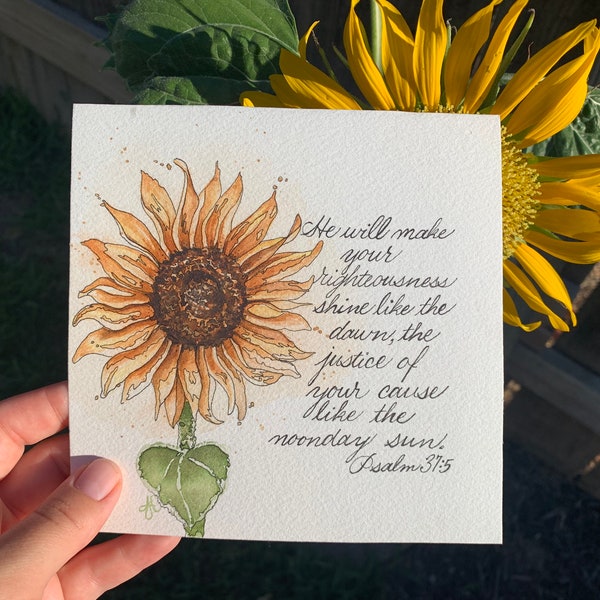 He will make
your
righteousness
shine like the
dawn, the
justice of
your cause
like the
noonday sun.
Psalm 37:5